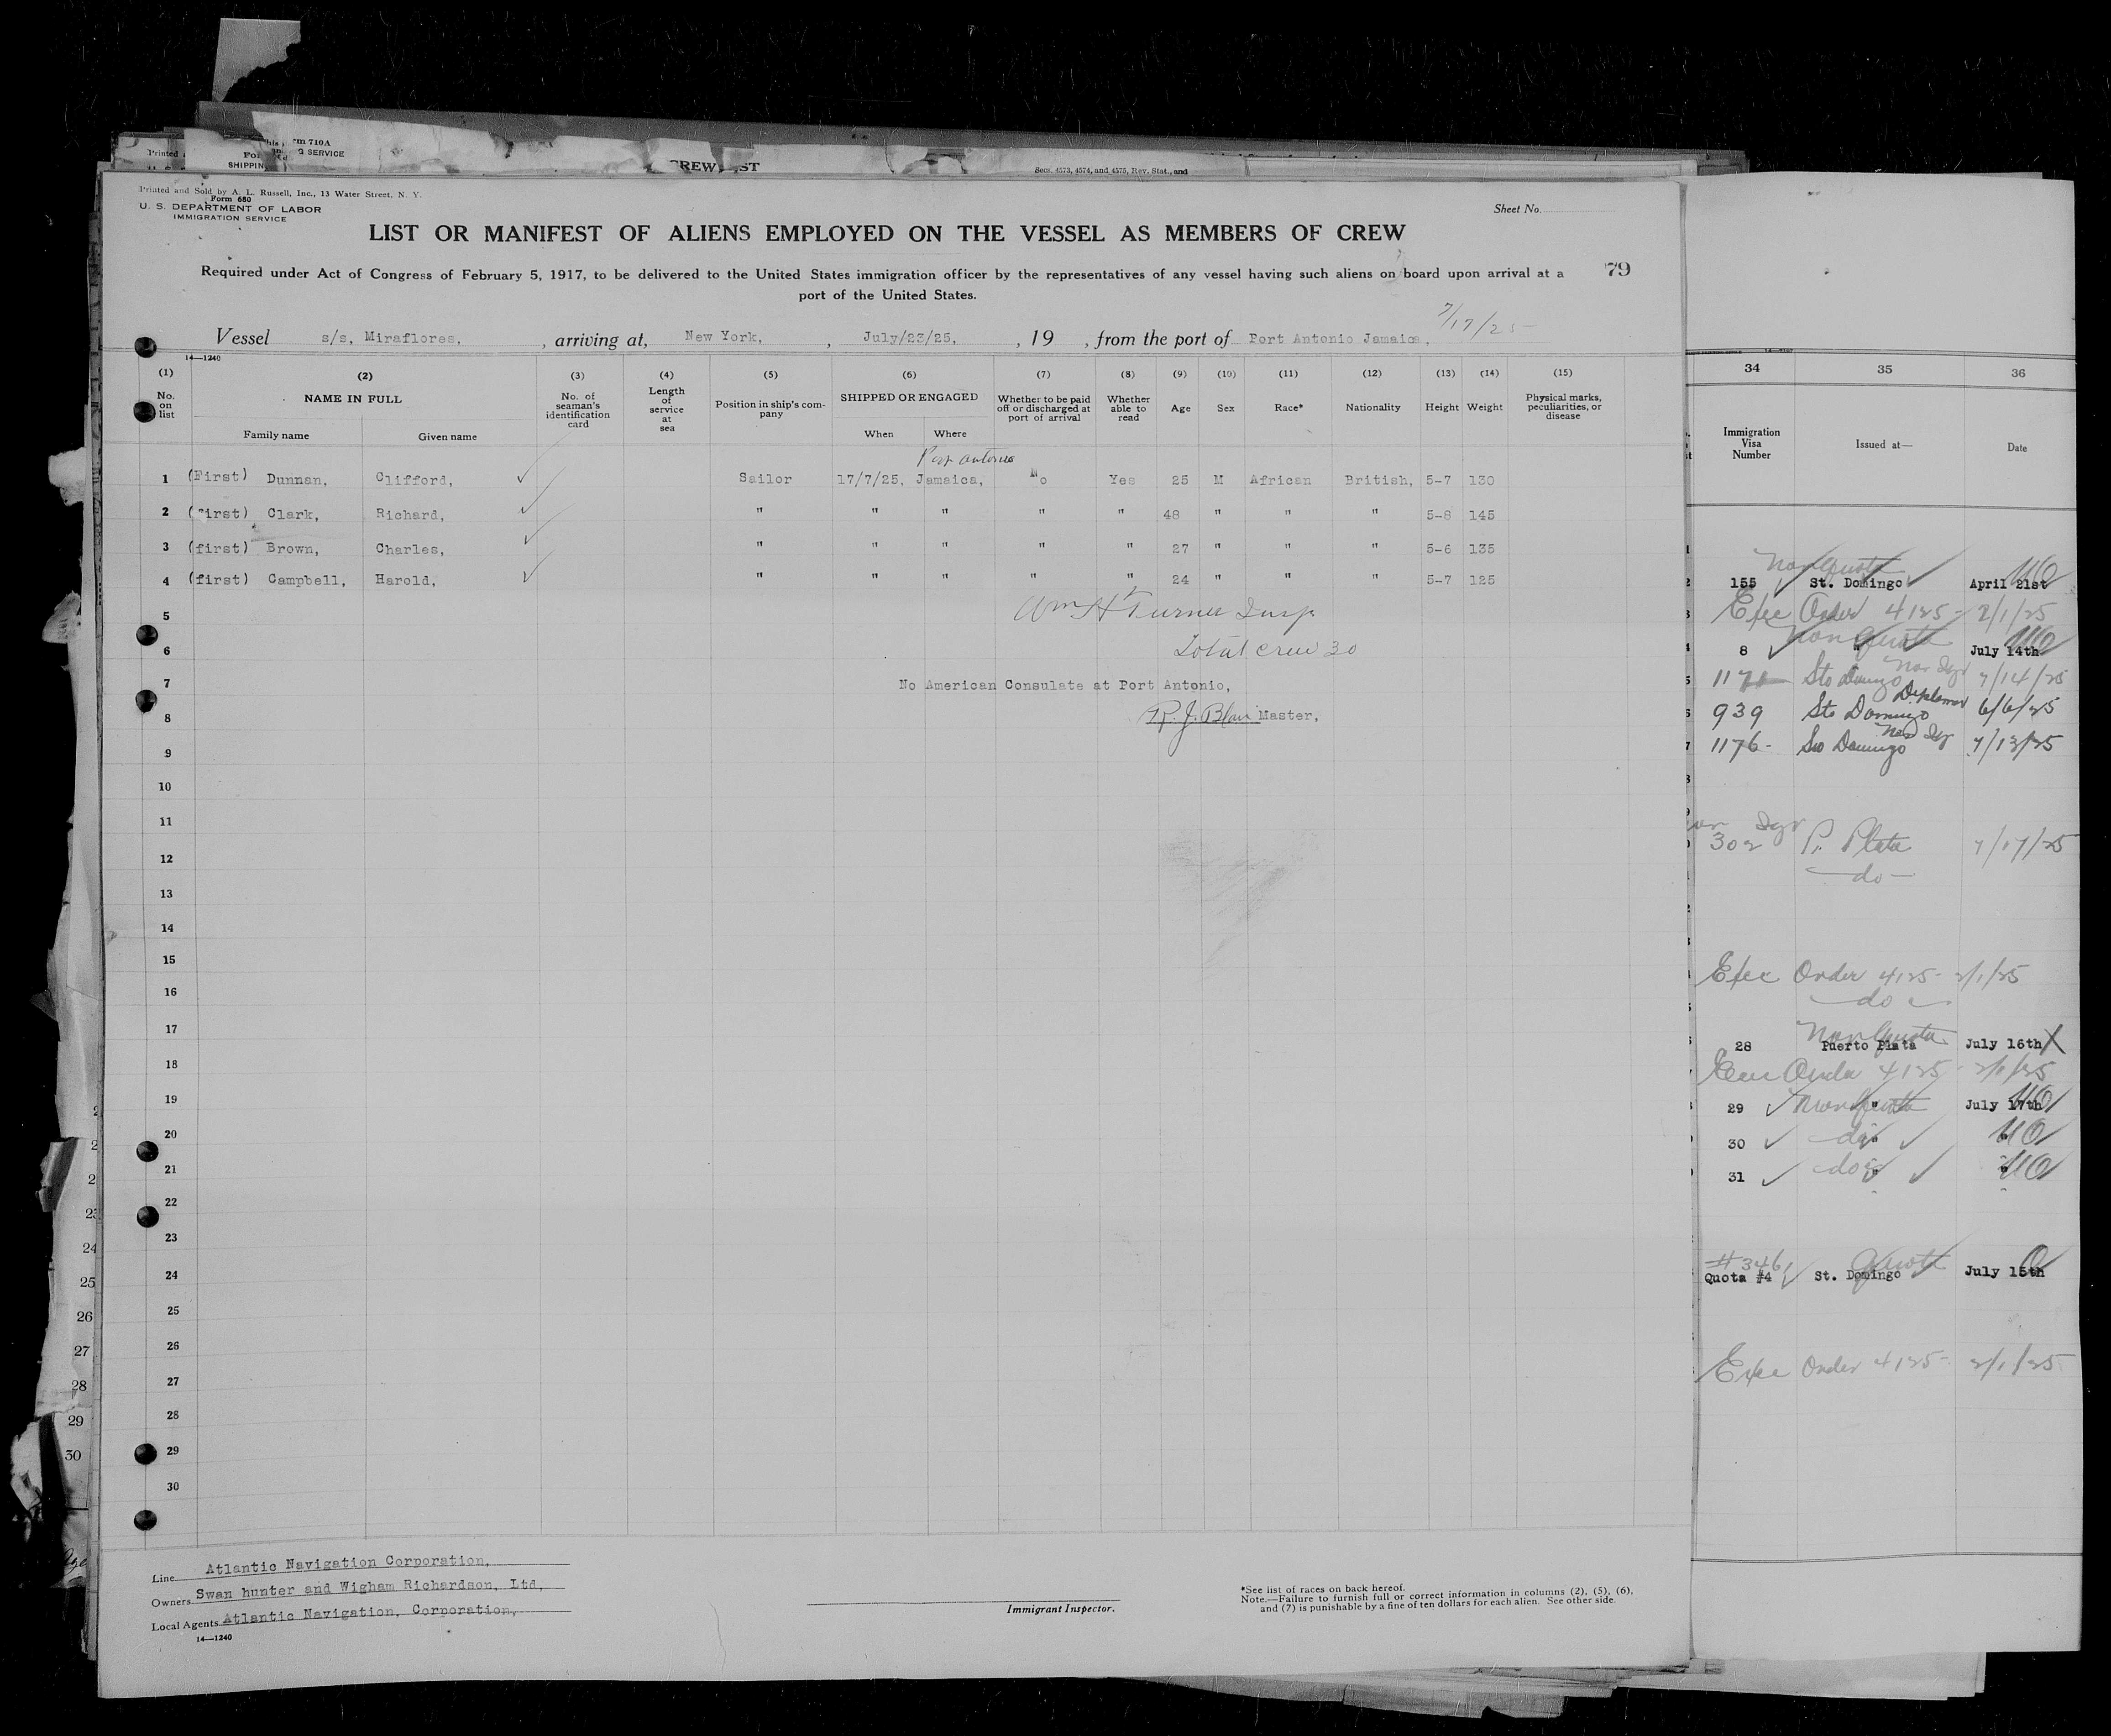 Printed and Sold by A. L. Russell, Inc., 13 Water Street, N. Y.
Form 680
U. S. DEPARTMENT OF LABOR
IMMIGRATION SERVICE
Sheet No.
LIST OR MANIFEST OF ALIENS EMPLOYED ON THE VESSEL AS MEMBERS OF CREW
Required under Act of Congress of February 5, 1917, to be delivered to the United States immigration officer by the representatives of any vessel having such aliens on board upon arrival at a
port of the United States.
79
7/17/25
Vessel s/s, Miraflores, , arriving at, New York, , July/23/25, , 19 , from the port of Port Antonio Jamaica,
14—1240
(1) (2) (3) (4) (5) (6) (7) (8) (9) (10) (11) (12) (13) (14) (15)
No. on list NAME IN FULL No. of seaman's identification card Length of service at sea Position in ship's company SHIPPED OR ENGAGED Whether to be paid off or discharged at port of arrival Whether able to read Age Sex Race* Nationality Height Weight Physical marks, peculiarities, or disease
Family name Given name When Where
Port Antonio
1 (First) Dunnan, Clifford, Sailor 17/7/25, Jamaica, No Yes 25 M African British, 5-7 130
2 (first) Clark, Richard, " " " " " 48 " " " 5-8 145
3 (first) Brown, Charles, " " " " " 27 " " " 5-6 135
4 (first) Campbell, Harold, " " " " " 24 " " " 5-7 125
5 Wm H Turner Insp
6 Total crew 30
7 No American Consulate at Port Antonio,
8 R. J. Blair Master,
9
10
11
12
13
14
15
16
17
18
19
20
21
22
23
24
25
26
27
28
29
30
Line Atlantic Navigation Corporation,
Owners Swan hunter and Wigham Richardson, Ltd,
Local Agents Atlantic Navigation, Corporation,
14—1240
Immigrant Inspector.
*See list of races on back hereof.
Note.—Failure to furnish full or correct information in columns (2), (5), (6),
and (7) is punishable by a fine of ten dollars for each alien. See other side.
34 35 36
Immigration Visa Number Issued at— Date
Non Quota
155 St. Domingo April 21st
Exec Order 4125 - 2/1/25
Non Quota
8 " July 14th
1171 Sto Domingo 7/14/25
939 Sto Domingo Diplomat 6/6/25
1176 - Sto Domingo 7/13/25
302 P. Plata 7/17/25
do
Exec Order 4125 - 2/1/25
do
Non Quota
28 Puerto Plata July 16th X
Exec Order 4125 - 2/1/25
29 Non Quota " July 17th
30 do " "
31 do " "
#346 Quota
Quota #4 St. Domingo July 15th
Exec Order 4125 - 2/1/25
Form 710A
SERVICE
SHIPPIN
CREW LIST
Secs. 4573, 4574, and 4575, Rev. Stat., and
24
25
26
27
28
29
30